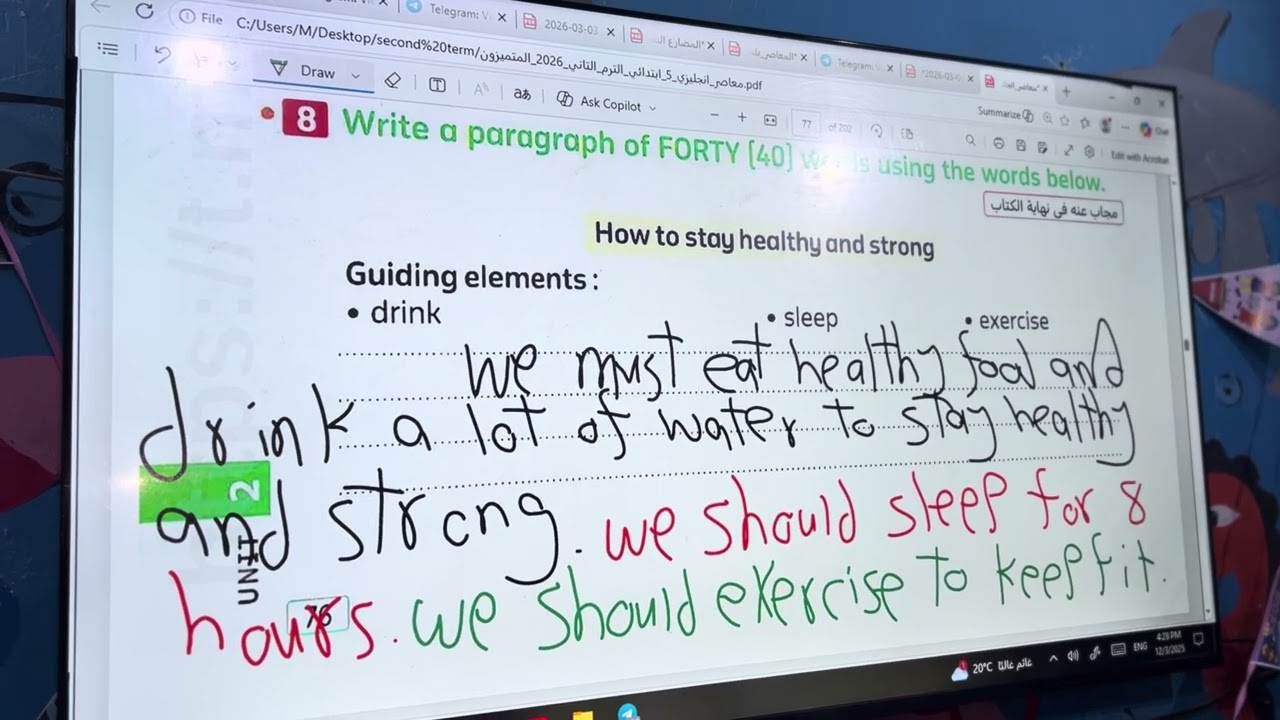 Telegram: V
2026-03-03
المضارع ال
Telegram: V
2026-03-0
File C:/Users/M/Desktop/second%20term/معاصر_انجليزي_5_ابتدائي_الترم_الثاني_2026_المتميزون.pdf
Draw
Ask Copilot
77 of 202
Summarize
Chat
Edit with Acrobat
8 Write a paragraph of FORTY [40] using the words below.
مجاب عنه فى نهاية الكتاب
How to stay healthy and strong
Guiding elements :
• drink • sleep • exercise
we must eat healthy food and
drink a lot of water to stay healthy
and strong. we should sleep for 8
hours. we should exercise to keep fit.
UNIT 2
76
20°C غائم غالبًا
ENG
4:28 PM
12/3/2025